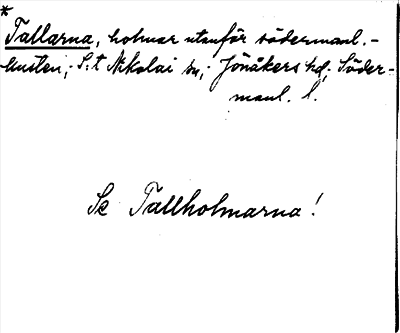 *
Tallarna, holmar utanför södermanl.-
kusten; S:t Nikolai sn, Jönåkers hd, Söder-
manl. l.
Se Tallholmarna!